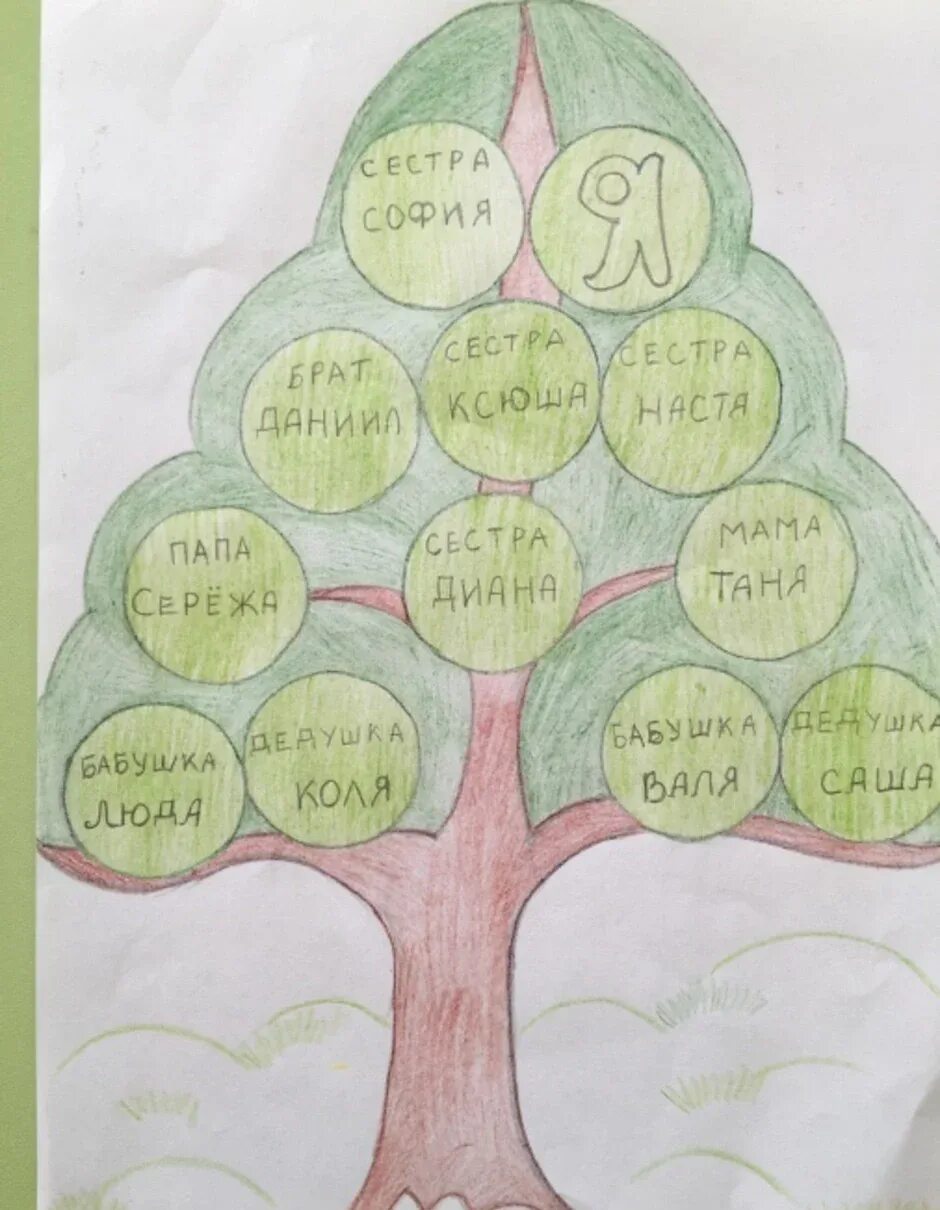 СЕСТРА
СОФИЯ
Я
БРАТ
ДАНИИЛ
СЕСТРА
КСЮША
СЕСТРА
НАСТЯ
ПАПА
СЕРЁЖА
СЕСТРА
ДИАНА
МАМА
ТАНЯ
БАБУШКА
ЛЮДА
ДЕДУШКА
КОЛЯ
БАБУШКА
ВАЛЯ
ДЕДУШКА
САША